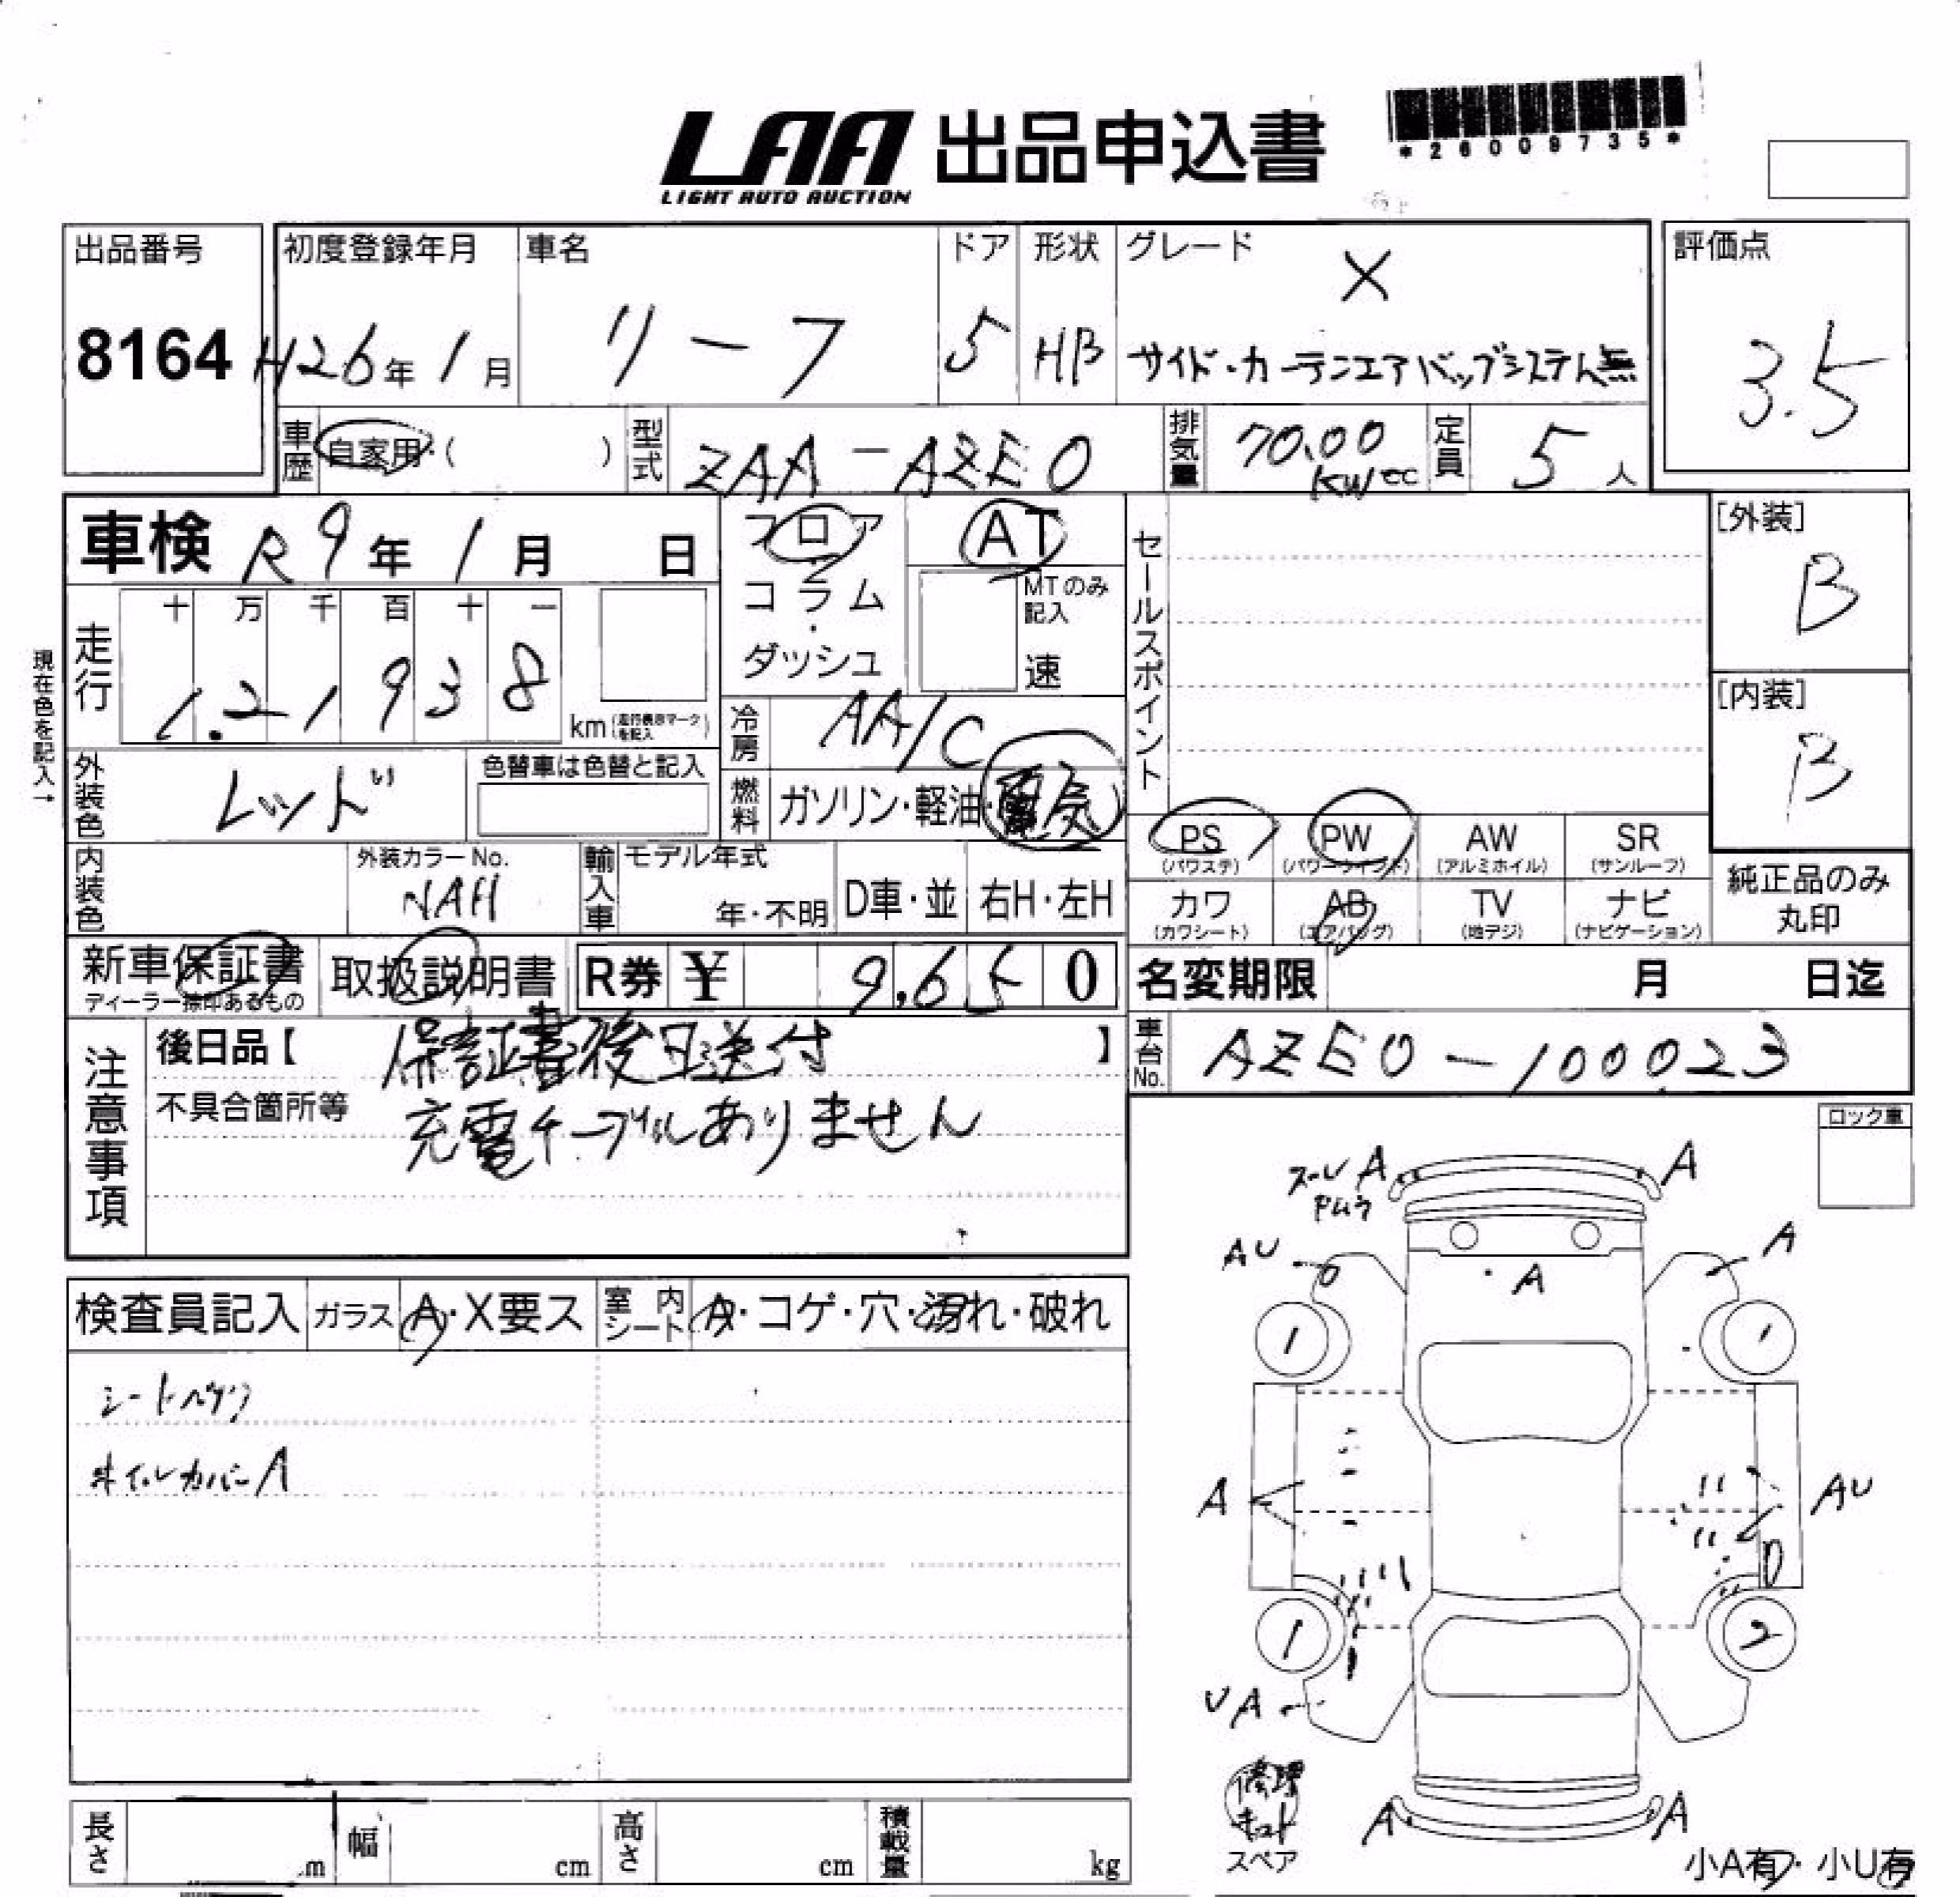 LAA 出品申込書
LIGHT AUTO AUCTION
*26009735*
出品番号
8164
初度登録年月
H26年1月
車名
リーフ
ドア
5
形状
HB
グレード
X
サイド・カーテンエアバッグシステム無
評価点
3.5
車歴
自家用・( )
型式
ZAA-AZE0
排気量
70.00
kw cc
定員
5人
車検 R9年1月 日
フロア
コラム
ダッシュ
AT
MTのみ記入
速
セールスポイント
[外装]
B
[内装]
B
現在色を記入→
走行
十 万 千 百 十 一
1.21938
km(走行表示マークを記入)
冷房
AA/C
燃料
ガソリン・軽油・電気
外装色
レッド
色替車は色替と記入
内装色
外装カラーNo.
NAH
輸入車
モデル年式
年・不明
D車・並
右H・左H
PS
(パワステ)
PW
(パワーウインド)
AW
(アルミホイル)
SR
(サンルーフ)
カワ
(カワシート)
AB
(エアバッグ)
TV
(地デジ)
ナビ
(ナビゲーション)
純正品のみ
丸印
新車保証書
ディーラー捺印あるもの
取扱説明書
R券 ¥ 9,650
名変期限 月 日迄
注意事項
後日品【 保証書後日送付 】
不具合箇所等
充電ケーブルありません
車台No.
AZE0-100023
ロック車
検査員記入
ガラス
A・X要ス
室内シート
A・コゲ・穴・汚れ・破れ
ホイルカバーA
A
A
AU
A
A
1
1
A
AU
1
2
UA
修理
キット
スペア
A
A
小A有・小U有
長さ
m
幅
cm
高さ
cm
積載量
kg